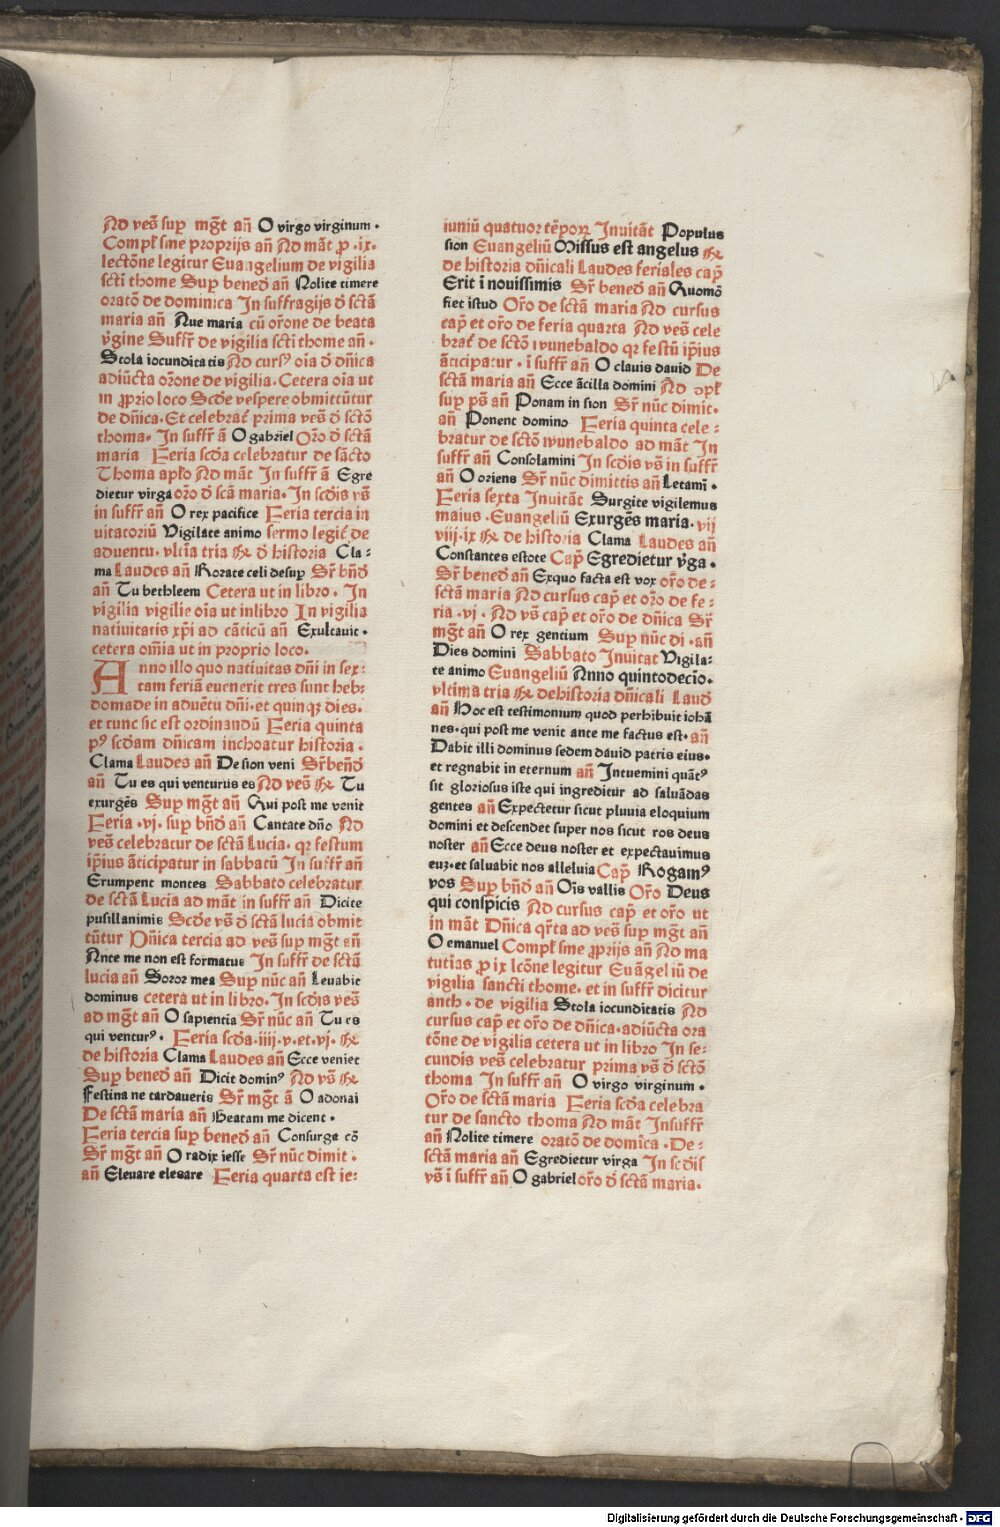 Ad ves̄ sup mḡt an̄ O virgo virginum ·
Compl̄ sine proprijs an̄ Ad māt p̱ · ix ·
lectōne legitur Euangelium de vigilia
sctī thome Sup bened̄ an̄ Nolite timere
oratō de dominica In suffragijs d̄ sctā
maria an̄ Aue maria cū or̄one de beata
v̄gine Suffr̄ de vigilia scti thome an̄ ·
Stola iocunditatis Ad curſꝰ oīa d̄ dn̄ica
adiūcta or̄one de vigilia · Cetera oīa ut
in ꝓprio loco Scd̄e vespere obmittūtur
de dn̄ica · Et celebrat̄ prima ves̄ d̄ sctō
thoma · In suffr̄ ā O gabriel Or̄o d̄ sctā
maria Feria scd̄a celebratur de sācto
Thoma apl̄o Ad māt In suffr̄ ā Egre
dietur virga or̄o d̄ scā maria · In scd̄is vs̄
in suffr̄ an̄ O rex pacifice Feria tercia in
uitatoriū Vigilate animo sermo legit̄ de
aduentu · vltīa tria ꝶ d̄ historia Cla-
ma Laudes an̄ Rorate celi desup Sr̄ bn̄d̄
an̄ Tu bethleem Cetera ut in libro · In
vigilia vigilie oīa ut inlibro In vigilia
natiuitatis xp̄i ad cāticū an̄ Exultauit ·
cetera om̄ia ut in proprio loco.
Anno illo quo natiuitas dn̄i in sex-
tam feriā euenerit tres sunt heb-
domade in aduētu dn̄i · et quinqꝫ dies ·
et tunc sic est ordinandū Feria quinta
pꝰ scd̄am dn̄icam inchoatur historia ·
Clama Laudes an̄ De sion veni Sr̄ ben̄d̄
an̄ Tu es qui venturus es Ad ves̄ ꝶ Tu
exurgēs Sup mḡt an̄ Qui post me venit
Feria · vj · sup bn̄d̄ an̄ Cantate dn̄o Ad
ves̄ celebratur de sctā Lucia · qꝛ festum
ip̄ius āticipatur in sabbatū In suffr̄ an̄
Erumpent montes Sabbato celebratur
de sctā Lucia ad māt in suffr̄ an̄ Dicite
pusillanimis Scd̄e vs̄ d̄ sctā lucia obmit
tūtur Dn̄ica tercia ad ves̄ sup mḡt an̄
Ante me non est formatus In suffr̄ de sctā
lucia an̄ Soror mea Sup nūc an̄ Leuabit
dominus cetera ut in libro · In scd̄is ves̄
ad mḡt an̄ O sapientia Sr̄ nūc an̄ Tu es
qui venturꝰ · Feria scd̄a · iiij · v · et · vj · ꝶ
de historia Clama Laudes an̄ Ecce veniet
Sup bened̄ an̄ Dicit dominꝰ Ad vs̄ ꝶ
Festina ne tardaueris Sr̄ mḡt ā O adonai
De sctā maria an̄ Beatam me dicent ·
Feria tercia sup bened̄ an̄ Consurge cō
Sr̄ mḡt an̄ O radix iesse Sr̄ nūc dimit ·
an̄ Eleuare eleuare Feria quarta est ie-
iuniū quatuor tēporꝝ Inuitāt Populus
sion Euangeliū Missus est angelus ꝶ
de historia dn̄icali Laudes feriales cap̄
Erit ī nouissimis Sr̄ bened̄ an̄ Quomō
fiet istud Or̄o de sctā maria Ad cursus
cap̄ et or̄o de feria quarta Ad ves̄ cele
brat̄ de sctō wunebaldo qꝛ festū ip̄ius
āticipatur · ī suffr̄ an̄ O clauis dauid De
sctā maria an̄ Ecce ācilla domini Ad ꝯpl̄
sup ps̄ an̄ Ponam in sion Sr̄ nūc dimit ·
an̄ Ponent domino Feria quinta cele-
bratur de sctō wunebaldo ad māt In
suffr̄ an̄ Consolamini In scd̄is vs̄ in suffr̄
an̄ O oriens Sr̄ nūc dimittis an̄ Letamī ·
Feria sexta Inuitāt Surgite vigilemus
maius · Euangeliū Exurgēs maria · vij
viij · ix ꝶ de historia Clama Laudes an̄
Constantes estote Cap̄ Egredietur v̄ga ·
Sr̄ bened̄ an̄ Exquo facta est vox or̄o de-
sctā maria Ad cursus cap̄ et or̄o de fe-
ria · vj · Ad vs̄ cap̄ et or̄o de dn̄ica Sr̄
mḡt an̄ O rex gentium Sup nūc di · an̄
Dies domini Sabbato Inuitat Vigila-
te animo Euangeliū Anno quintodecio ·
vltima tria ꝶ dehistoria dn̄icali Laud̄
an̄ Hoc est testimonium quod perhibuit iohā
nes · qui post me venit ante me factus est · an̄
Dabit illi dominus sedem dauid patris eius ·
et regnabit in eternum an̄ Intuemini quātꝰ
sit gloriosus iste qui ingreditur ad saluādas
gentes an̄ Expectetur sicut pluuia eloquium
domini et descendet super nos sicut ros deus
noster an̄ Ecce deus noster et expectauimus
euꝫ · et saluabit nos alleluia Cap̄ Rogamꝰ
vos Sup bn̄d̄ an̄ Oīs vallis Or̄o Deus
qui conspicis Ad cursus cap̄ et or̄o ut
in māt Dn̄ica qr̄ta ad ves̄ sup mḡt an̄
O emanuel Compl̄ sine ꝓprijs an̄ Ad ma
tutīas p̱ ix lcōne legitur Euāgeliū de
vigilia sancti thome · et in suffr̄ dicitur
anth · de vigilia Stola iocunditatis Ad
cursus cap̄ et or̄o de dn̄ica · adiūcta ora
tōne de vigilia cetera ut in libro In se-
cundis ves̄ celebratur prima vs̄ d̄ sctō
thoma In suffr̄ an̄ O virgo virginum ·
Or̄o de sctā maria Feria scd̄a celebra
tur de sancto thoma Ad māt Insuffr̄
an̄ Nolite timere oratō de domīca · De-
sctā maria an̄ Egredietur virga In scd̄is
vs̄ ī suffr̄ an̄ O gabriel or̄o d̄ sctā maria ·
Digitalisierung gefördert durch die Deutsche Forschungsgemeinschaft - DFG